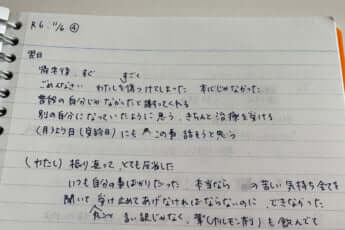 R6. 11/6 ④
翌日
帰宅後、すぐ
ごめんなさい わたしを傷つけてしまった 本心じゃなかった
すごく
普段の自分じゃなかったと謝ってくれる
別の自分になっていたように思う、きちんと治療を受ける
(月)とり日(受診日)にも この事 話そうと思う
(わたし) 振り返って、とても反省した
いつも自分の事ばかりだった 本当なら の苦しい気持ち全てを
聞いて 受け止めてあげなければならないのに できなかった
言い訳じゃなく、薬(ホルモン剤)も飲んでて